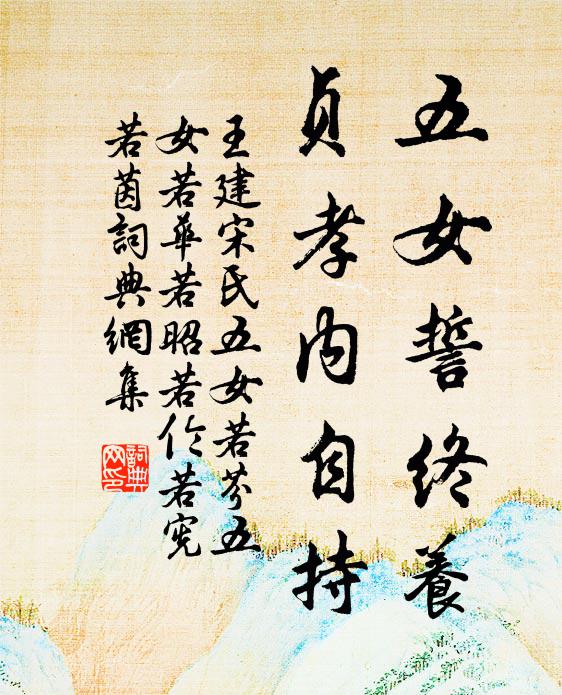 五女誓終養
贞孝内自持
王建宋氏五女若芬五
女若華若昭若伦若宪
若茵詞典網集
詞典
网印